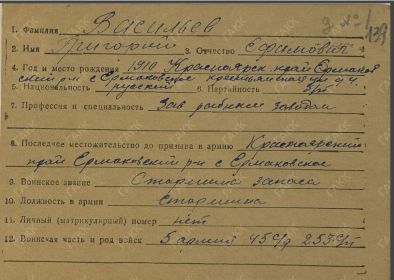 1. Фамилия Васильев
2 №1/139
2. Имя Григорий 3. Отчество Ефимович
4. Год и место рождения 1910 Красноярск. край Ермаков
ский р-н с Ермаковское
5. Национальность русский 6. Партийность б/п
7. Профессия и специальность Зав рыбным заводом
8. Последнее местожительство до призыва в армию Красноярский
край Ермаковский р-н с Ермаковское
9. Воинское звание Старшина запаса
10. Должность в армии Старшина
11. Личный (матрикулярный) номер нет
12. Воинская часть и род войск 5 армия 45 с/д 253 с/п